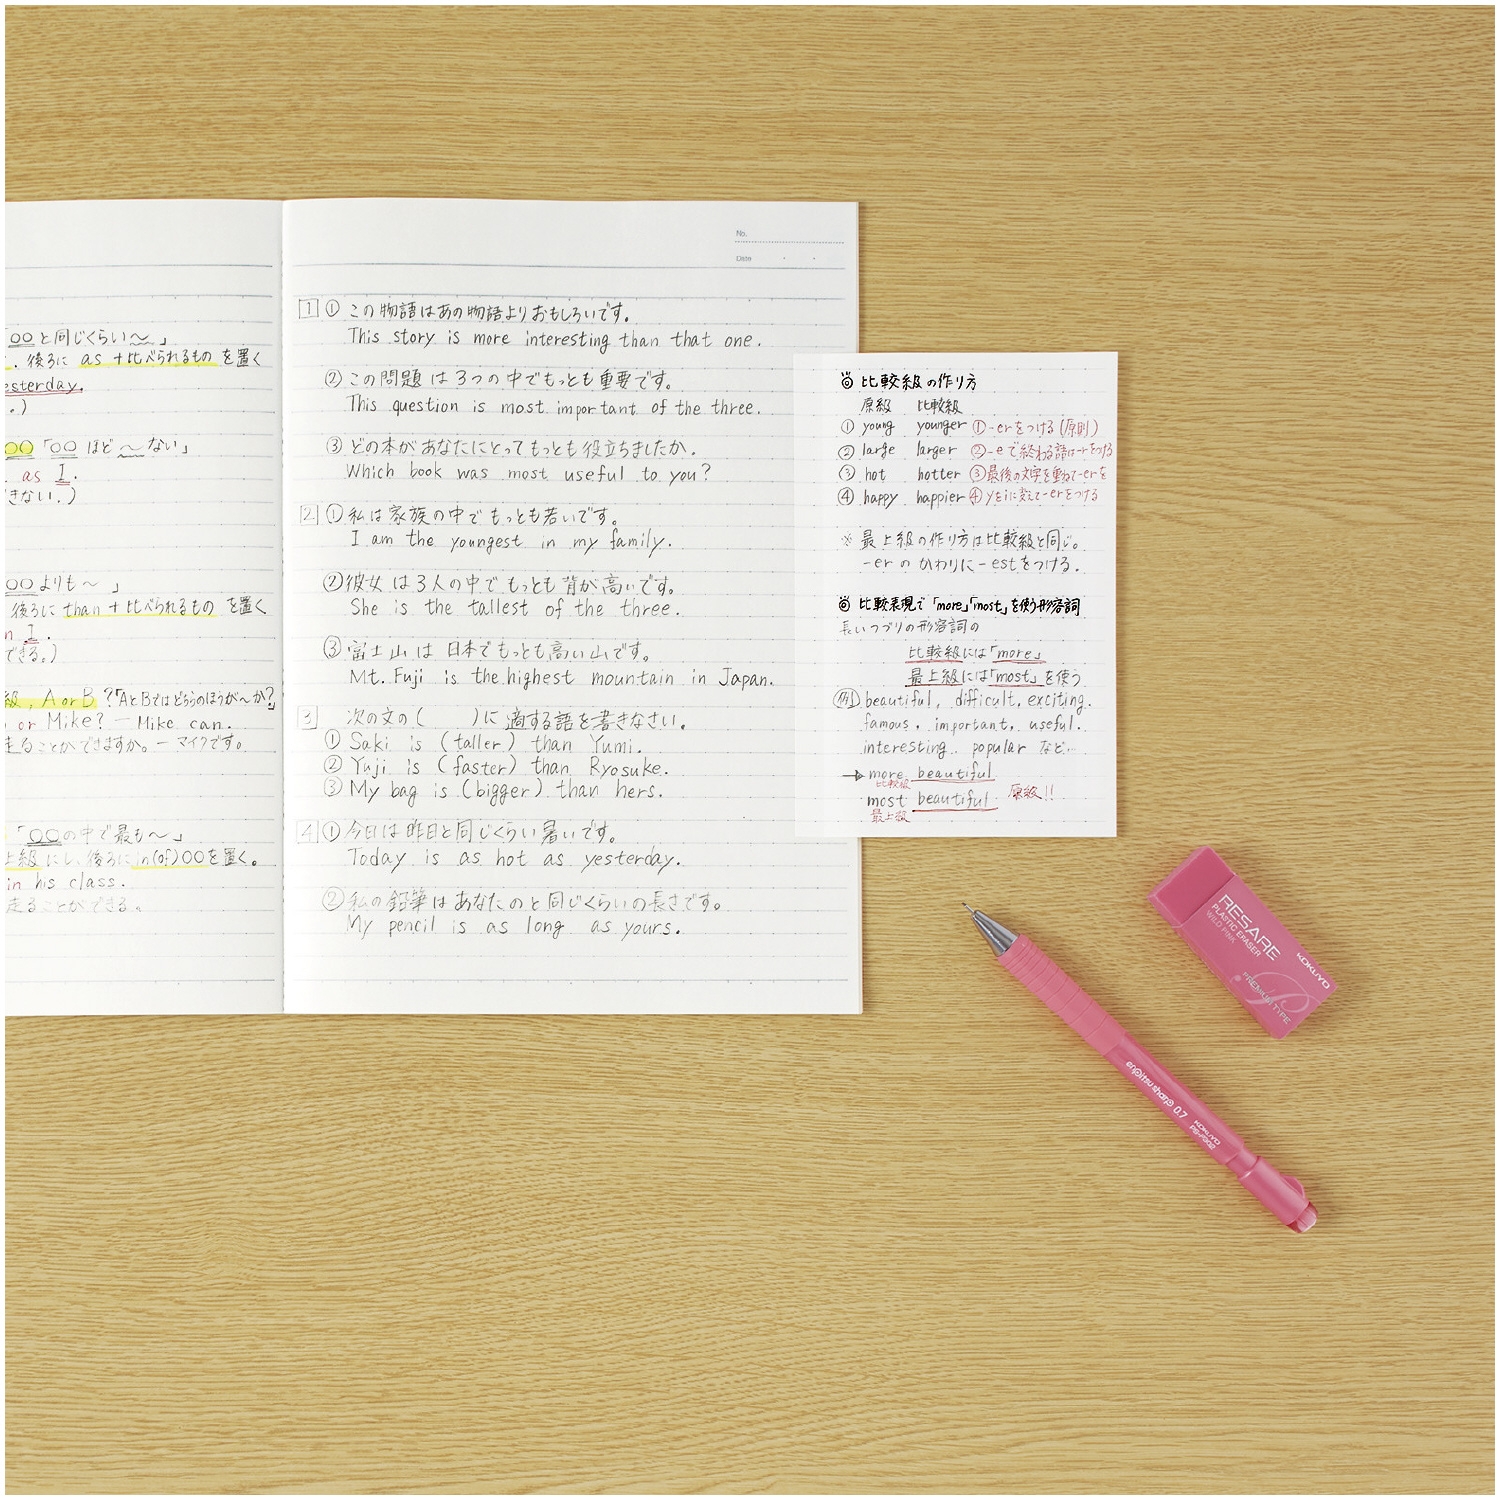 「○○と同じくらい～」
. 後ろに as +比べられるもの を置く
esterday.
.)
○○「○○ ほど～ない」
as I.
きない.)
○○よりも～ 」
後ろに than + 比べられるもの を置く
n I.
できる。)
級, A or B ?「AとBではどちらのほうが～か?」
or Mike? — Mike can.
走ることができますか。— マイクです。
「○○の中で最も～」
上級 にし、後ろに in(of)○○を置く。
in his class.
走ることができる。
No.
Date
1 ① この物語はあの物語よりおもしろいです。
This story is more interesting than that one.
② この問題 は 3つの中でもっとも重要です。
This question is most important of the three.
③ どの本があなたにとってもっとも役立ちましたか.
Which book was most useful to you?
2 ① 私は家族の中でもっとも若いです。
I am the youngest in my family.
② 彼女は3人の中でもっとも背が高いです。
She is the tallest of the three.
③ 富士山は 日本でもっとも高い山です。
Mt. Fuji is the highest mountain in Japan.
3 次の文の( )に適する語を書きなさい。
① Saki is (taller) than Yumi.
② Yuji is (faster) than Ryosuke.
③ My bag is (bigger) than hers.
4 ① 今日は昨日と同じくらい暑いです。
Today is as hot as yesterday.
② 私の鉛筆はあなたのと同じくらいの長さです。
My pencil is as long as yours.
◎ 比較級の作り方
原級 比較級
① young younger ① -erをつける(原則)
② large larger ② -eで終わる語は-rをつける
③ hot hotter ③ 最後の文字を重ねて-erを
④ happy happier ④ yをiに変えて-erをつける
※ 最上級の作り方は比較級と同じ。
-er の かわりに -estをつける.
◎ 比較表現で「more」「most」を使う形容詞
長いつづりの形容詞の
比較級には「more」
最上級には「most」を使う
例) beautiful, difficult, exciting.
famous, important, useful.
interesting. popular など…
→ more beautiful
比較級
most beautiful 原級!!
最上級
RESARE
PLASTIC ERASER
WILD PINK
KOKUYO
PREMIUM TYPE
enpitsu sharp 0.7
KOKUYO